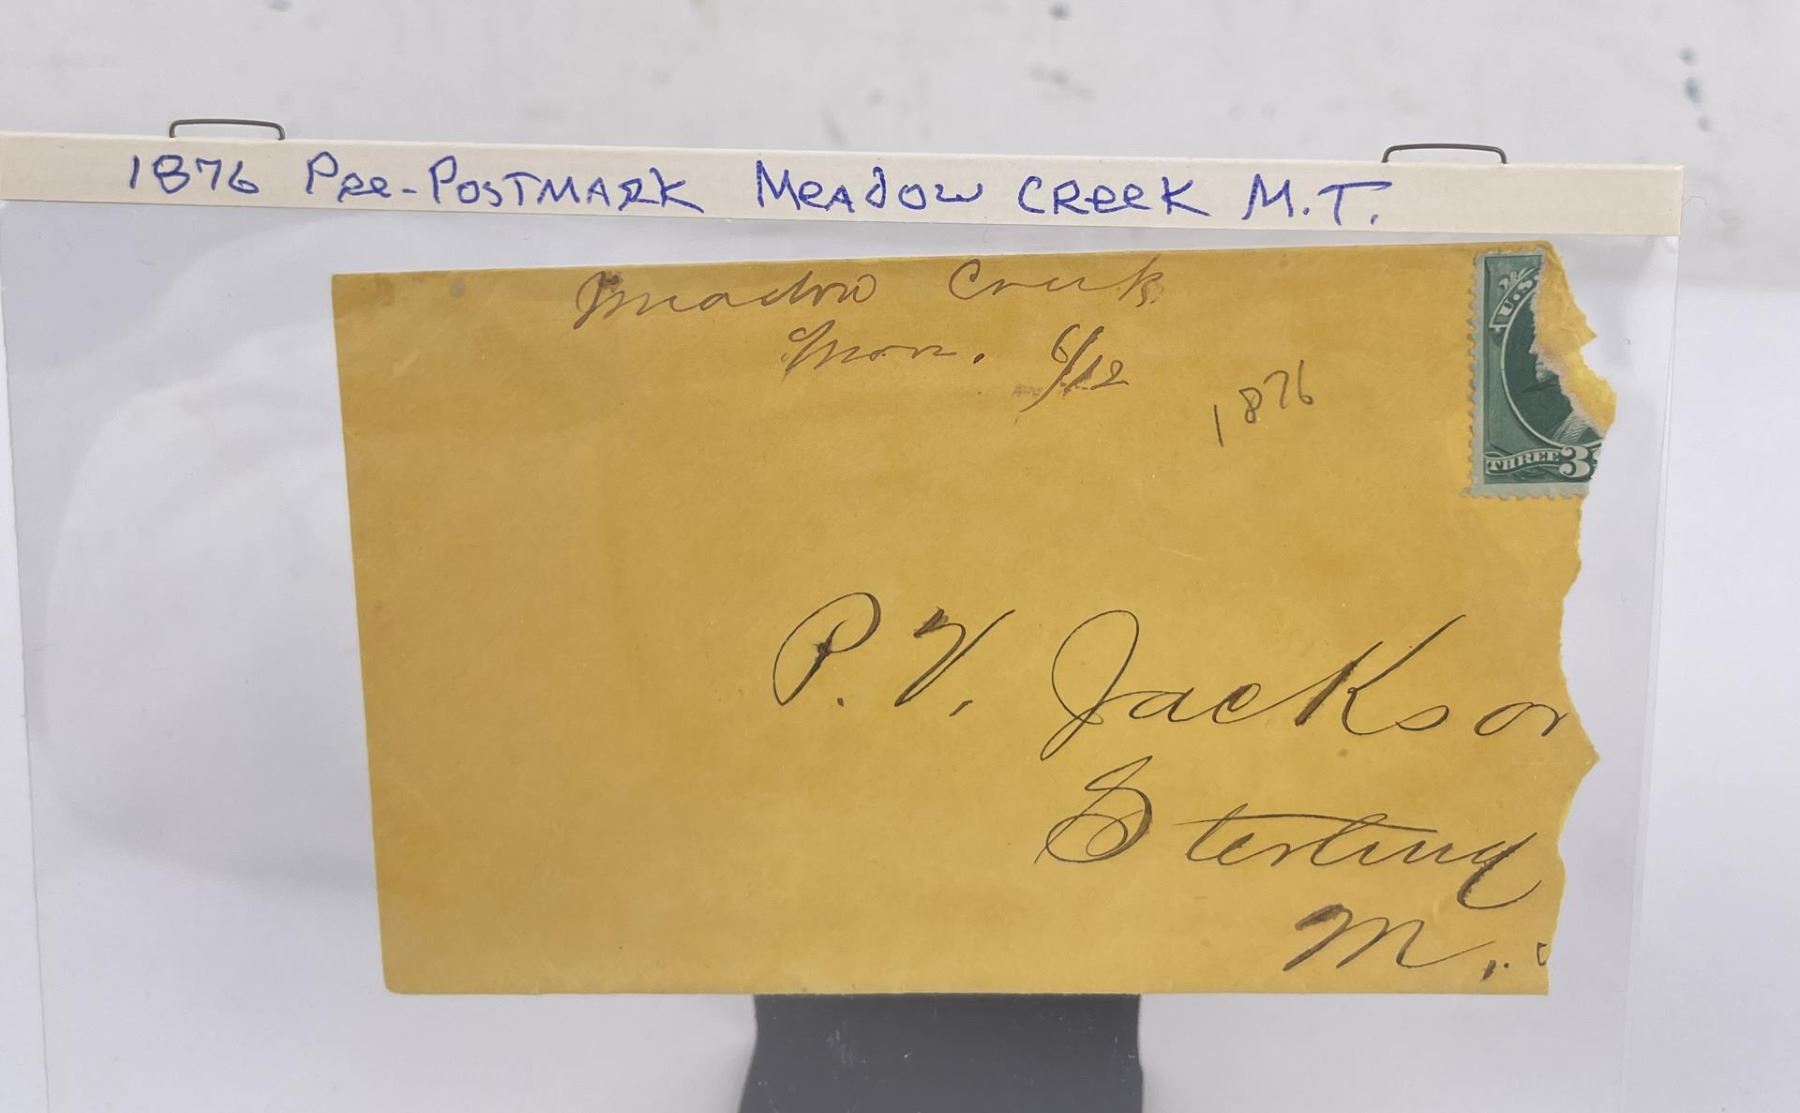 1876 Pre-Postmark Meadow Creek M.T.
Meadow Creek
Mon. 6/12
1876
U.S.
THREE 3
P. V. Jackson
Sterling
M.